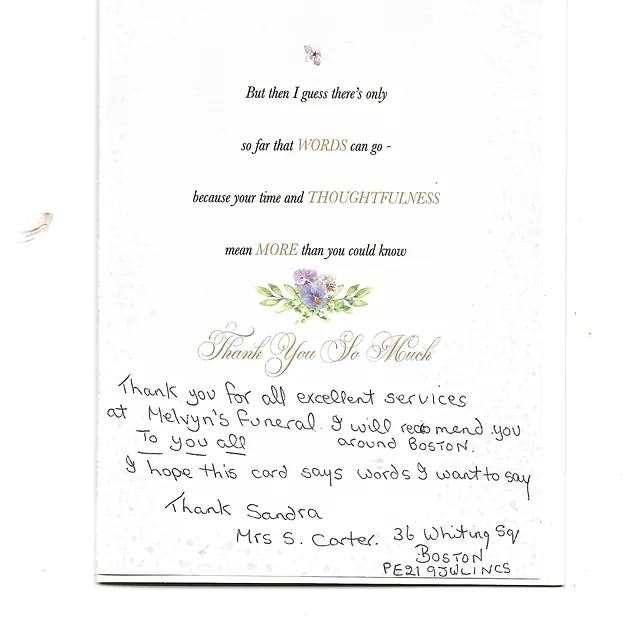 But then I guess there's only
so far that WORDS can go -
because your time and THOUGHTFULNESS
mean MORE than you could know
Thank You So Much
Thank you for all excellent services
at Melvyn's Funeral. I will recomend you
To you all around BOSTON.
I hope this card says words I want to say
Thank Sandra
Mrs S. Carter. 36 Whiting Sq
BOSTON
PE21 9JW LINCS